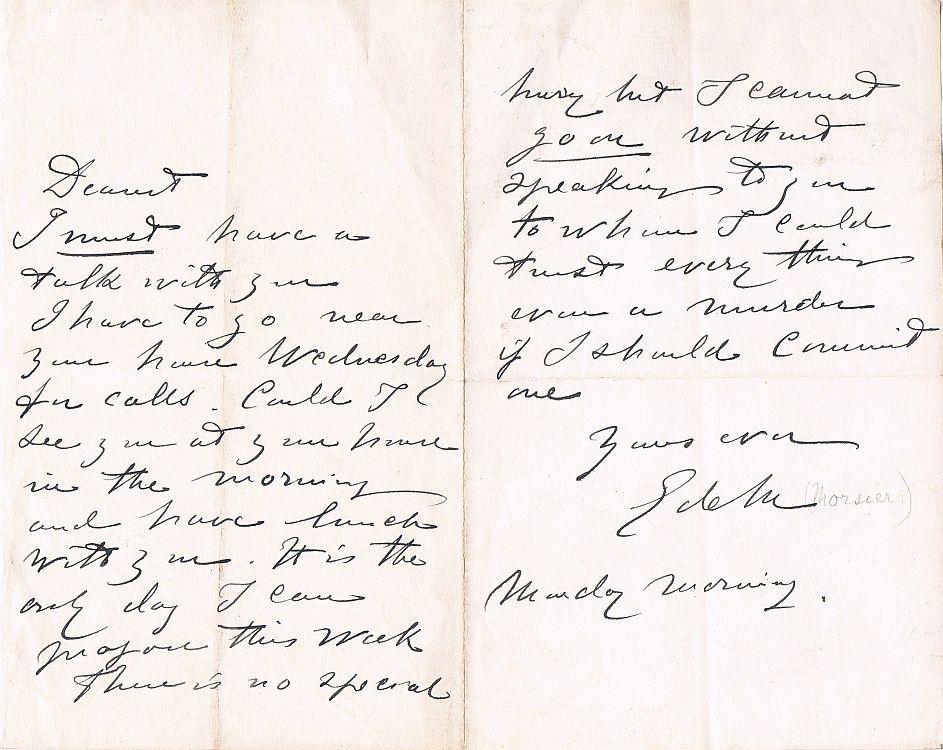 Dearest
I must have a
talk with you
I have to go near
your house Wednesday
for calls. Could I
see you at your house
in the morning
and have lunch
with you. It is the
only day I can
propose this week
There is no special
hurry but I cannot
go on without
speaking to you
to whom I could
trust every thing
even a murder
if I should commit
one
Yours ever
Edith (Morsier)
Monday morning.